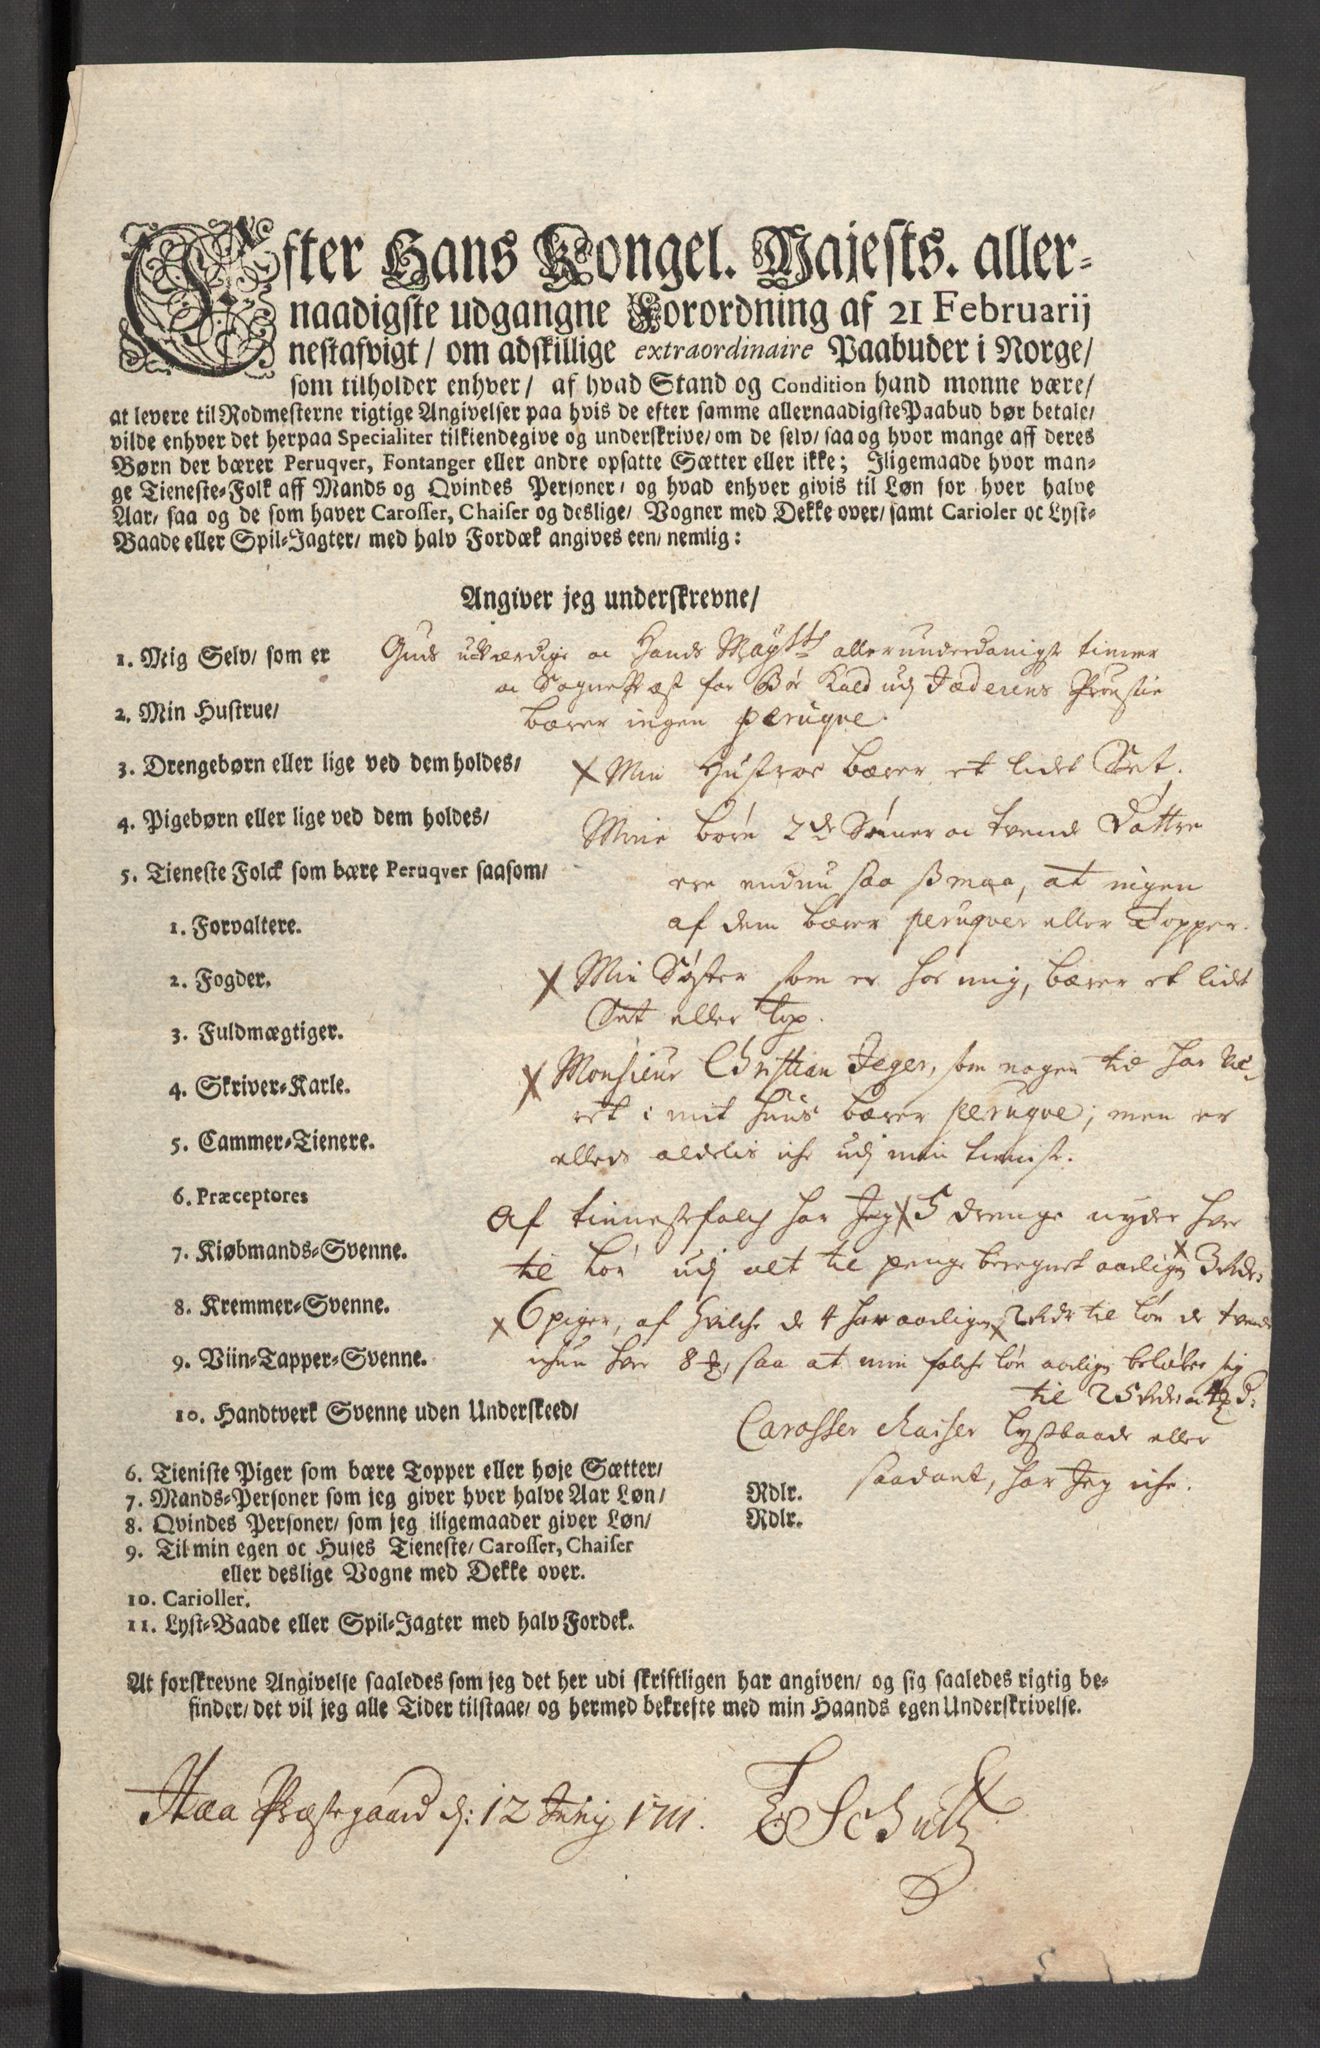 Efter Hans Kongel. Majests. aller-
naadigste udgangne Forordning af 21 Februarij
nestafvigt/ om adskillige extraordinaire Paabuder i Norge/
som tilholder enhver/ af hvad Stand og Condition hand monne være/
at levere til Rodmesterne rigtige Angivelser paa hvis de efter samme allernaadigste Paabud bør betale/
vilde enhver det herpaa Specialiter tilkiendegive og underskrive/ om de selv/ saa og hvor mange aff deres
Børn der bærer Peruqver, Fontanger eller andre opsatte Sætter eller ikke; Iligemaade hvor man-
ge Tieneste-Folk aff Mands og Qvindes Personer/ og hvad enhver givis til Løn for hver halve
Aar/ saa og de som haver Carosser, Chaiser og deslige/ Vogner med Dekke over/ samt Carioler oc Lyst-
Baade eller Spil-Jagter/ med halv Fordæk angives een/ nemlig:
Angiver jeg underskrevne/
1. Meig Selv/ som er
Guds uværdige oc Hands Maÿtts allerunderdanigste tiener
oc Sogneprest for Bøe Kald udj Jæderens Prousti
bærer ingen peruqve.
2. Min Hustrue/
3. Drengebørn eller lige ved dem holdes/
x Min Hustroe bærer et lidet Set.
4. Pigebørn eller lige ved dem holdes/
Mine børn 2de Sønner oc tvende Døttre
5. Tieneste Folck som bære Peruqver saasom/
ere endnu saa smaa, at ingen
af dem bærer peruqver eller Topper.
1. Forvaltere.
2. Fogder.
x Min Søster som er hos mig, bærer et lidet
Set eller Top.
3. Fuldmægtiger.
4. Skriver-Karle.
x Monsieur Christian Jeger, som nogen tid har væ-
ret i mit huus bærer peruqve; men er
5. Cammer-Tienere.
ellers aldelis iche udj min tieniste.
6. Præceptores
Af tiennestefolch har Jeg x 5 drenge nyder hver
7. Kiøbmands-Svenne.
til løn udj alt til penge beregnet aarligen x 3 Rdr,
8. Kremmer-Svenne.
x 6 piger, af hvilche de 4 har aarligen x 2 Rdr til løn de tvende
9. Viin-Tapper-Svenne.
ichun hver 8 , saa at min folche løn aarligen beløber sig
til 25 Rdr
10. Handtverk Svenne uden Underskeed/
Carosser chaiser lystbaade eller
saadant, har Jeg iche.
6. Tieniste Piger som bære Topper eller høje Sætter/
7. Mands-Personer som jeg giver hver halve Aar Løn/ Rdlr.
8. Qvindes Personer/ som jeg iligemaader giver Løn/ Rdlr.
9. Til min egen oc Huses Tieneste/ Carosser, Chaiser
eller deslige Vogne med Dekke over.
10. Carioller.
11. Lyst-Baade eller Spil-Jagter med halv Fordek.
At forskrevne Angivelse saaledes som jeg det her udi skriftligen har angiven/ og sig saaledes rigtig be-
finder/ det vil jeg alle Tider tilstaae/ og hermed bekrefte med min Haands egen Underskrivelse.
Haa Præstegaard d: 12 Junij 1711. E Schultz